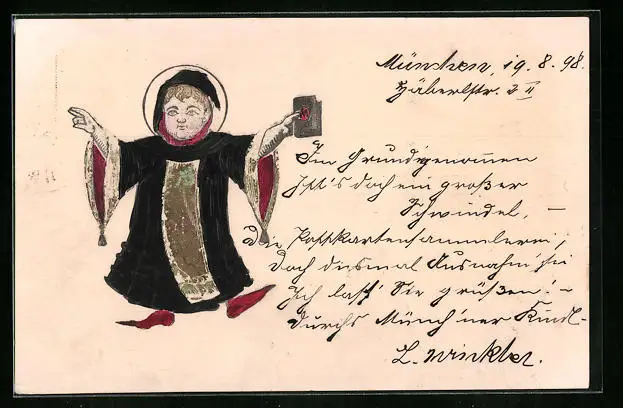 München, 19. 8. 98.
Häberlstr. 2 II
Im Grundgenommen
Ist's doch ein großer
Schwindel, –
Die Postkartensammlerei;
Doch diesmal Ausnahm' sei
Ich lass' Sie grüßen! –
Durchs Münch'ner Kindl-
L. Winkler.